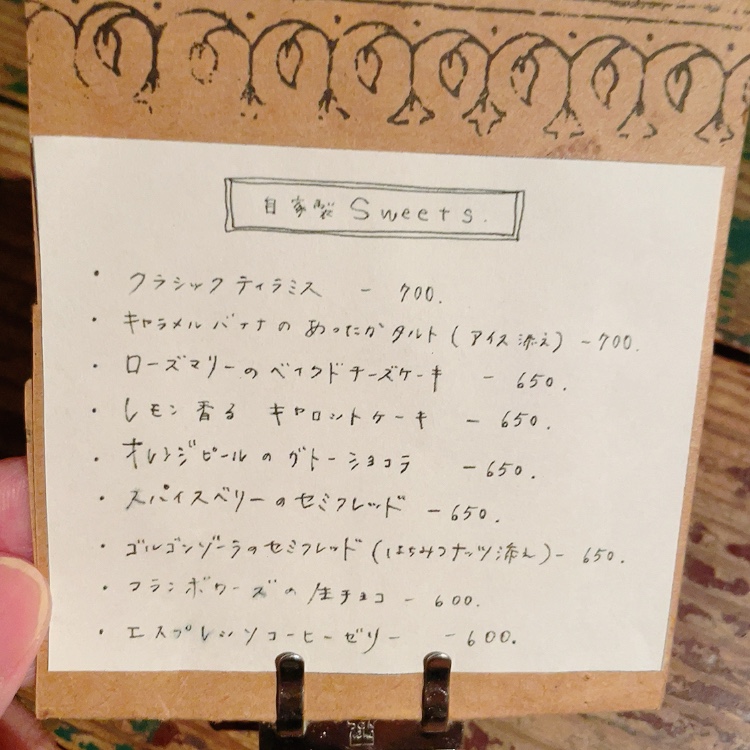 自家製 Sweets.
・クラシックティラミス - 700.
・キャラメルバナナのあったかタルト(アイス添え) -700.
・ローズマリーのベイクドチーズケーキ - 650.
・レモン香る キャロットケーキ - 650.
・オレンジピールのガトーショコラ -650.
・スパイスベリーのセミフレッド -650.
・ゴルゴンゾーラのセミフレッド(はちみつナッツ添え)- 650.
・フランボワーズの生チョコ - 600.
・エスプレッソコーヒーゼリー -600.